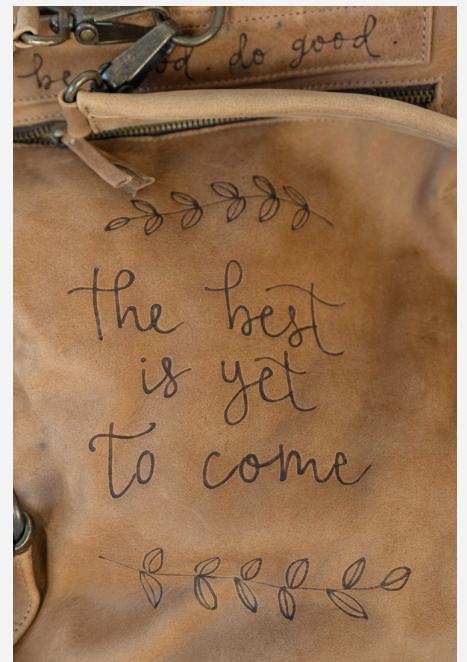 be good. do good.
the best
is yet
to come